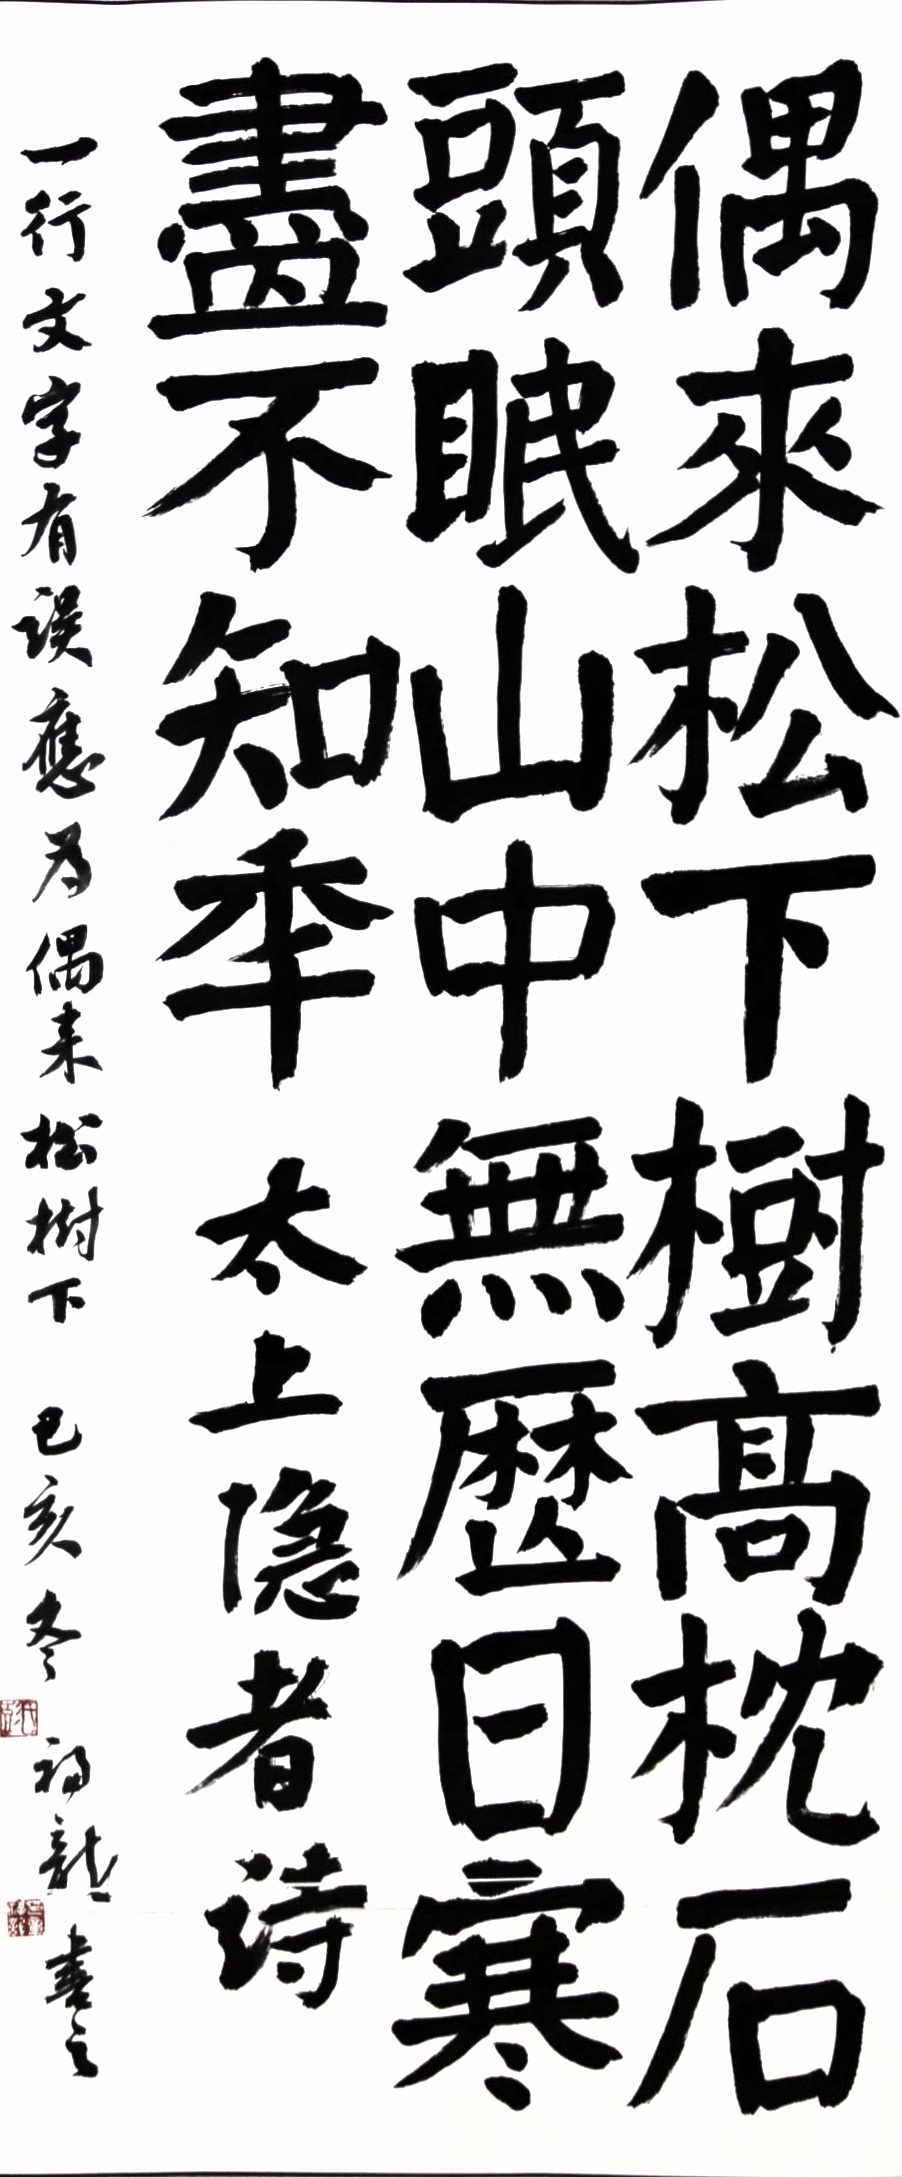 偶來松下樹高枕石
頭眠山中無歷日寒
盡不知年 太上隐者诗
一行文字有误應为偶来松樹下 己亥冬 福龍書之